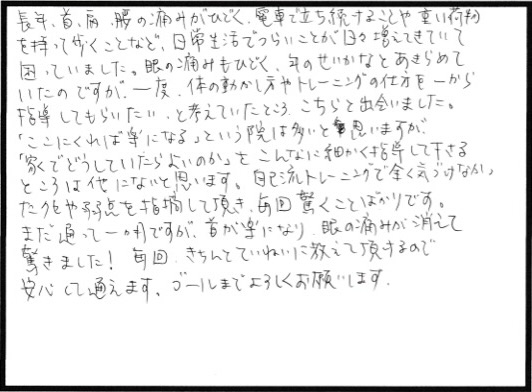 長年、首、肩、腰の痛みがひどく、電車で立ち続けることや重い荷物
を持って歩くことなど、日常生活でつらいことが日々増えてきていて
困っていました。眼の痛みもひどく、年のせいかなとあきらめて
いたのですが、一度、体の動かし方やトレーニングの仕方を一から
指導してもらいたい、と考えていたところ、こちらと出会いました。
「ここにくれば楽になる」という院は多いと思いますが、
「家でどうしていたらよいのか」をこんなに細かく指導して下さる
ところは他にないと思います。自己流トレーニングで全く気づけなかっ
たクセや弱点を指摘して頂き、毎回驚くことばかりです。
まだ通って一ヶ月ですが、首が楽になり、眼の痛みが消えて
驚きました！毎回、きちんとていねいに教えて頂けるので
安心して通えます。ゴールまでよろしくお願いします。